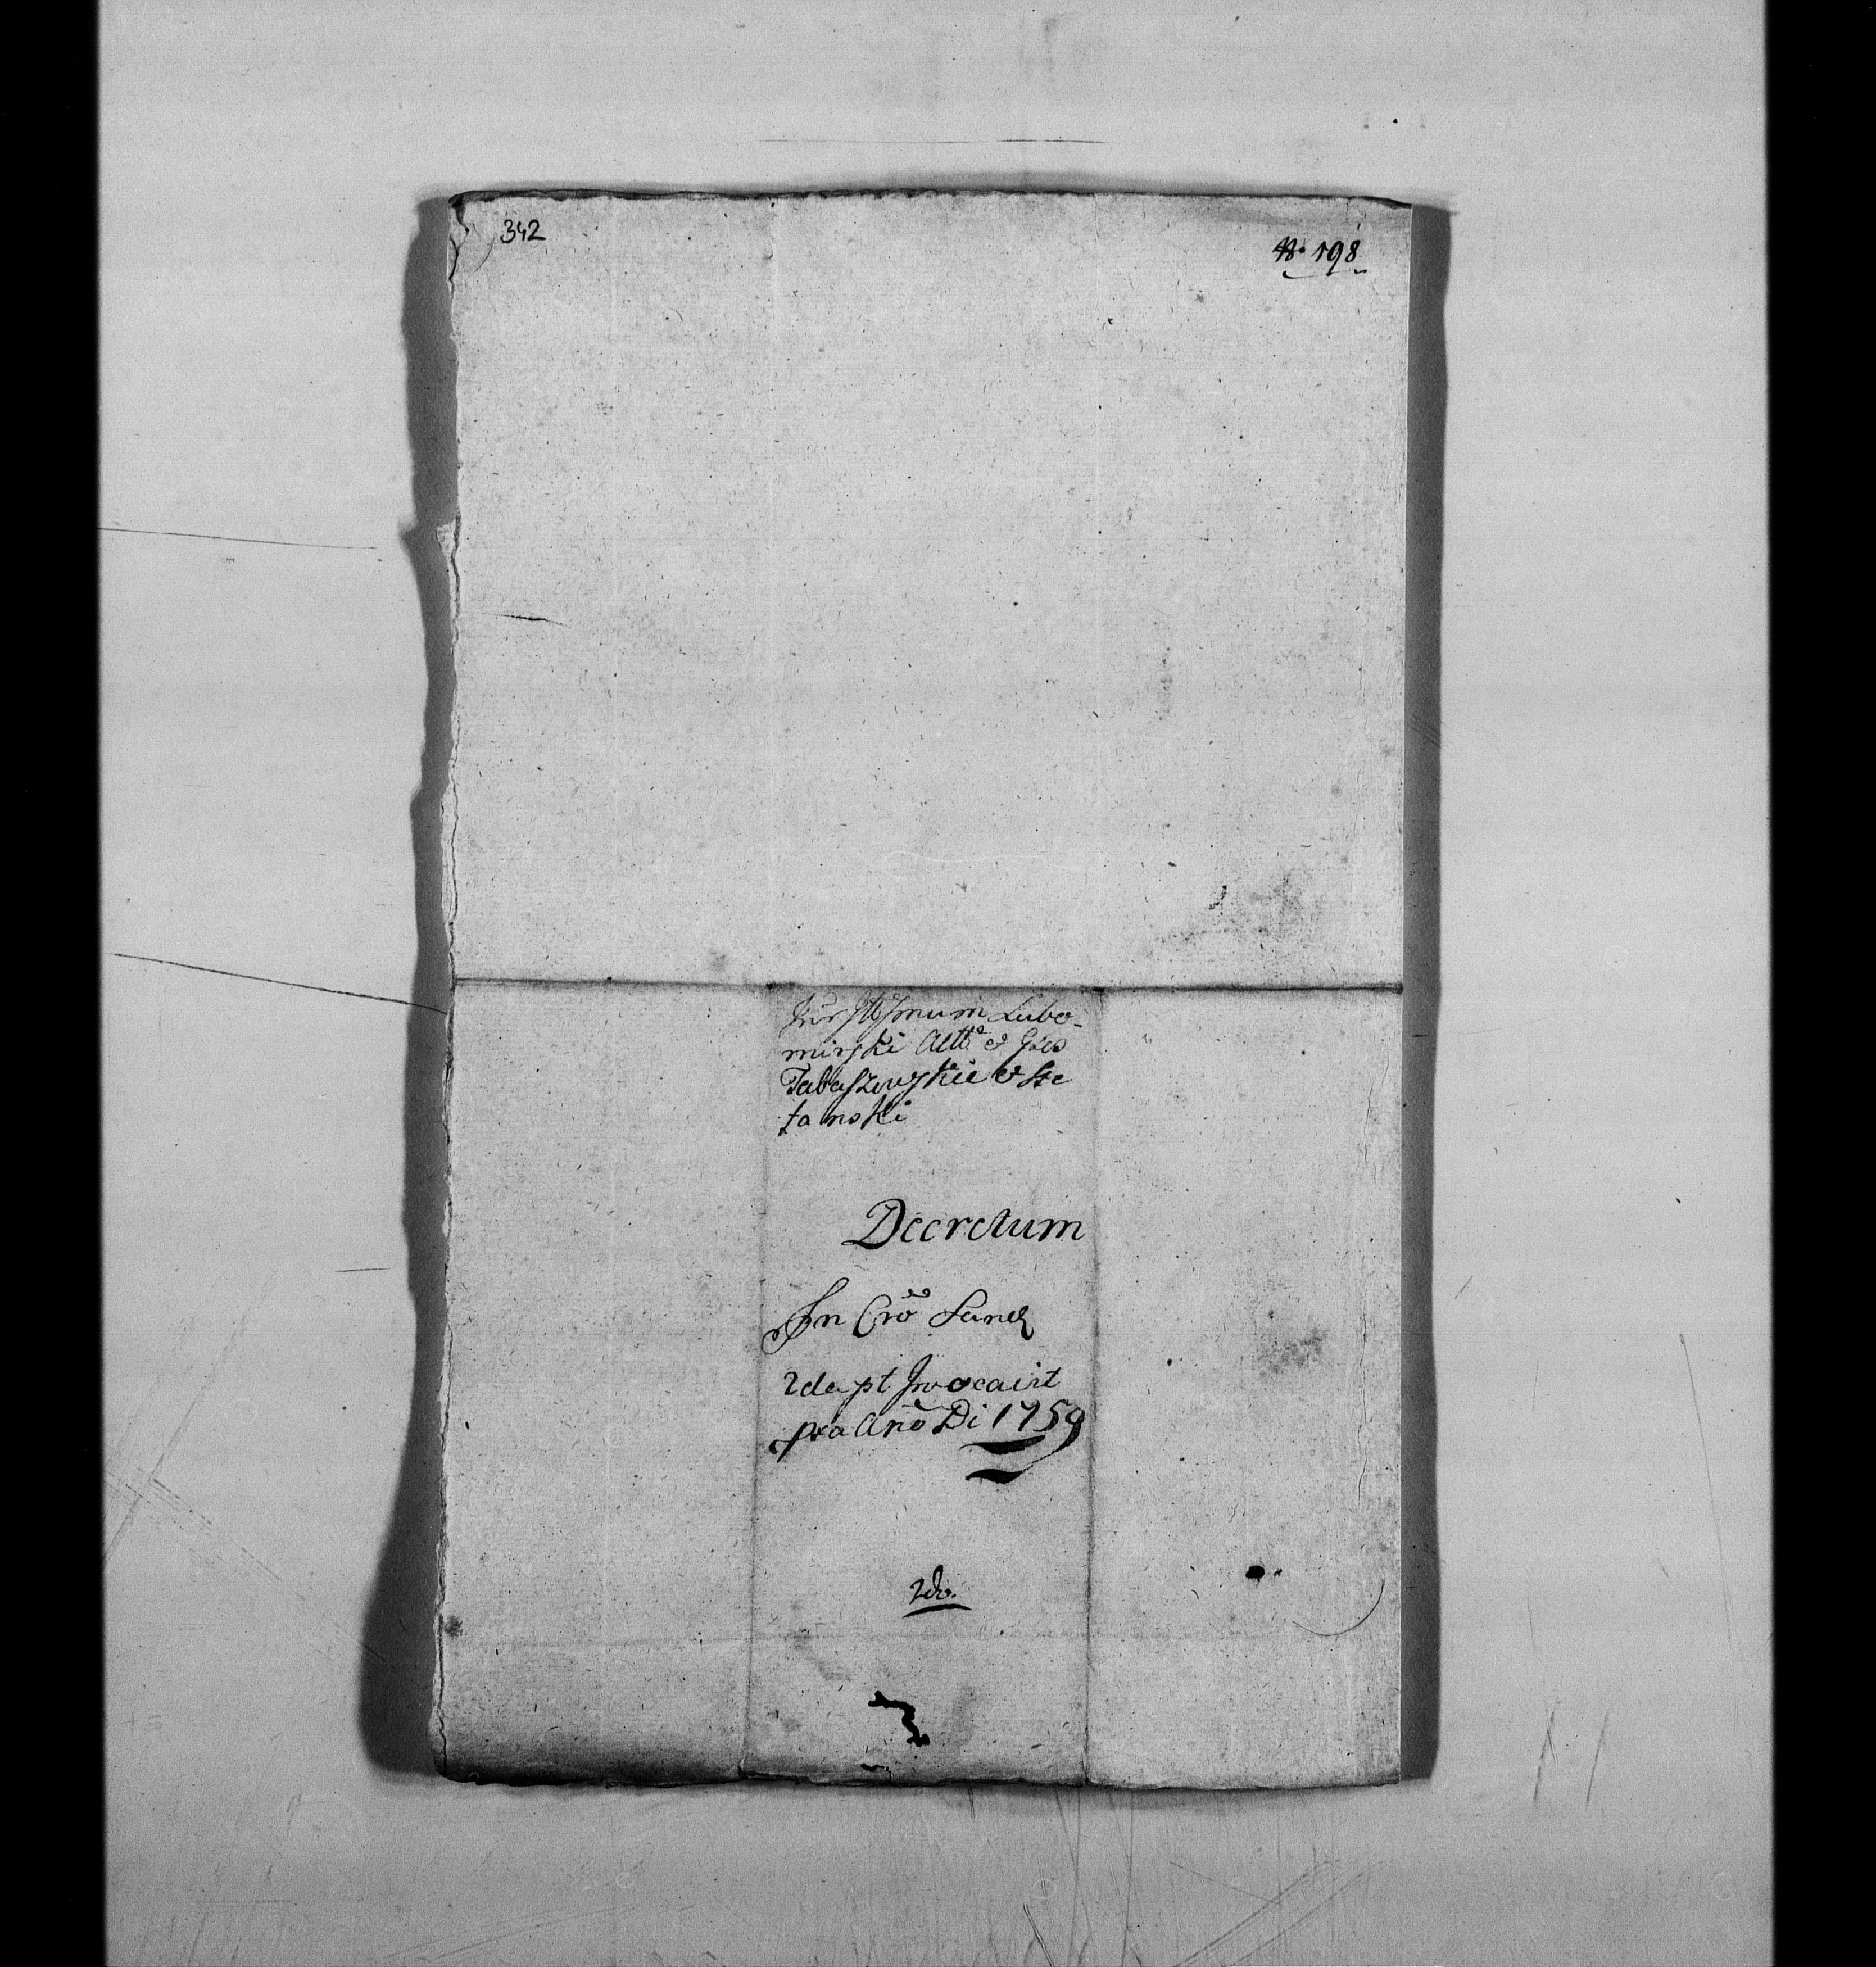 342
No 198
Inr Illssmum Lubo-
mirski Actt et Gsos
Tabaszewskie et Ste
tanski
Decretum
In Cro Sand
2da pt Invocavit
pra Ano Di 1759
2do.